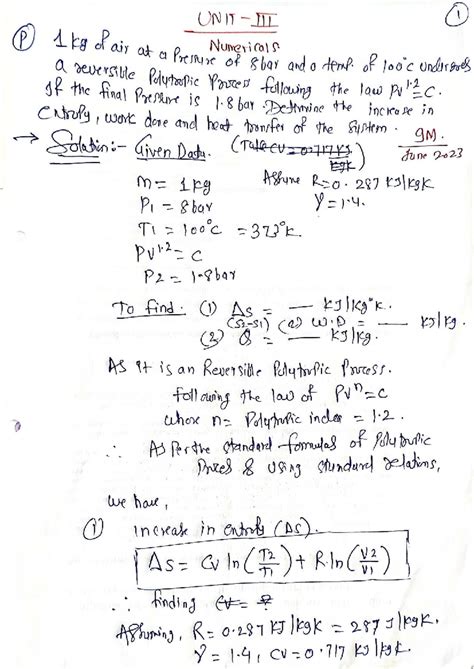 UNIT-III
①
Numericals
Ⓟ 1kg of air at a Pressure of 8bar and a temp. of 100°C undergoes
a reversible Polytropic Process following the law PV^1.2=C.
If the final Pressure is 1.8bar. Determine the increase in
Entropy, work done and heat transfer of the System.
9M.
June 2023
→ Solution:- Given Data. (Take CV=0.717KJ/kgk)
m= 1kg
Assume R=0.287 KJ/kgk
P1 = 8bar
γ=1.4.
T1 = 100°C = 373°k.
PV^1.2 = C
P2 = 1.8bar
To find. (1) Δs = — KJ/kg°k.
(S2-S1) (2) W.D = — KJ/kg.
(3) Q = — KJ/kg.
As it is an Reversible Polytropic Process.
following the law of PV^n=C
where n= Polytropic index = 1.2.
∴ As Per the standard formulas of Polytropic
& using standard relations,
we have,
① increase in entropy (Δs).
Δs = Cv ln(T2/T1) + R.ln(V2/V1)
∴ finding CV= ?
Assuming, R= 0.287 KJ/kgk = 287 J/kgk.
γ= 1.4, CV= 0.717 KJ/kgk.